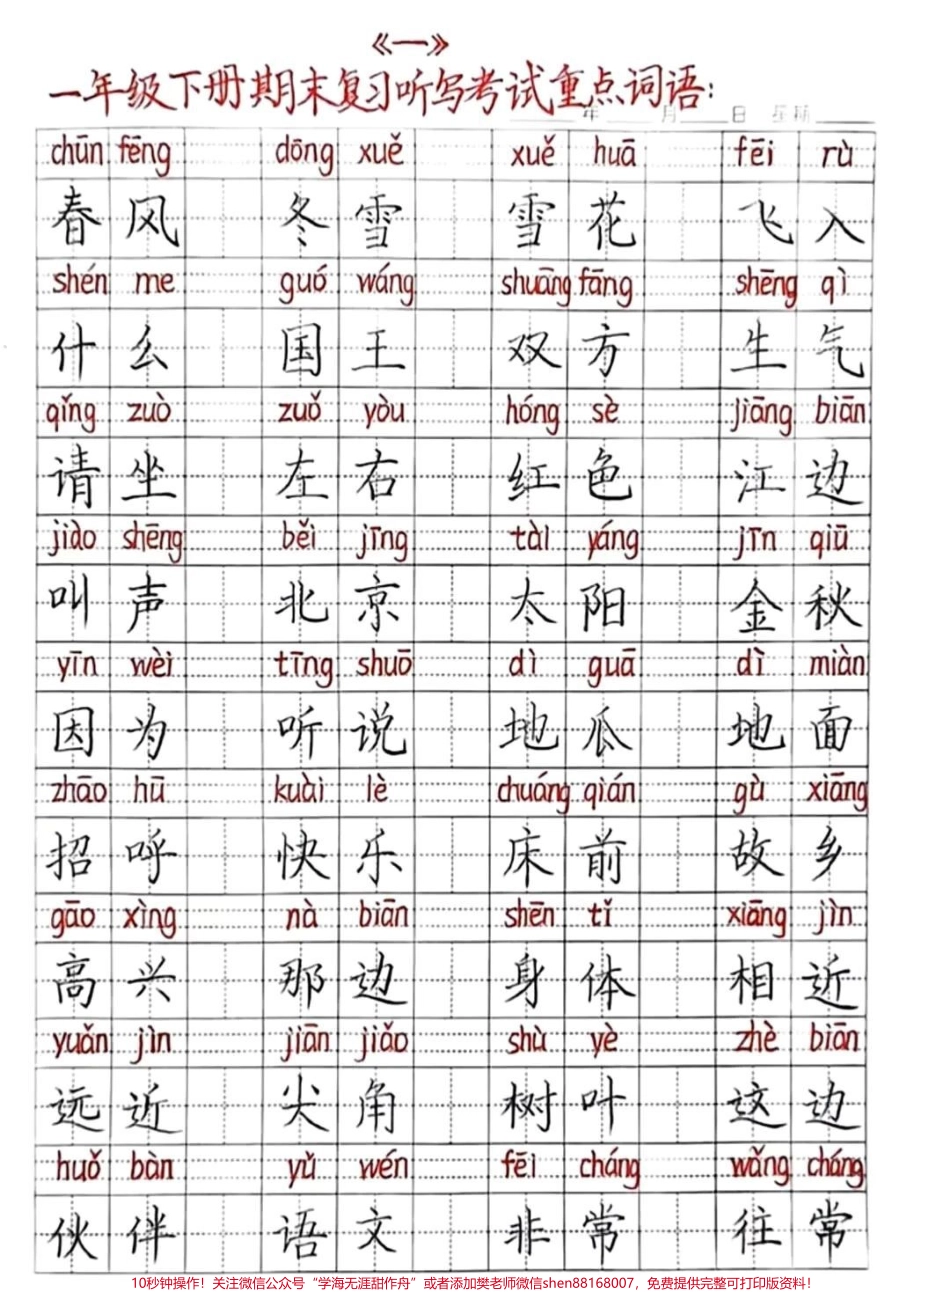 《一》
一年级下册期末复习听写考试重点词语：
年 月 日 星期
chūn fēng dōng xuě xuě huā fēi rù
春风 冬雪 雪花 飞入
shén me guó wáng shuāng fāng shēng qì
什么 国王 双方 生气
qǐng zuò zuǒ yòu hóng sè jiāng biān
请坐 左右 红色 江边
jiào shēng běi jīng tài yáng jīn qiū
叫声 北京 太阳 金秋
yīn wèi tīng shuō dì guā dì miàn
因为 听说 地瓜 地面
zhāo hū kuài lè chuáng qián gù xiāng
招呼 快乐 床前 故乡
gāo xìng nà biān shēn tǐ xiāng jìn
高兴 那边 身体 相近
yuǎn jìn jiān jiǎo shù yè zhè biān
远近 尖角 树叶 这边
huǒ bàn yǔ wén fēi cháng wǎng cháng
伙伴 语文 非常 往常
10秒钟操作！关注微信公众号“学海无涯甜作舟”或者添加樊老师微信shen88168007，免费提供完整可打印版资料！